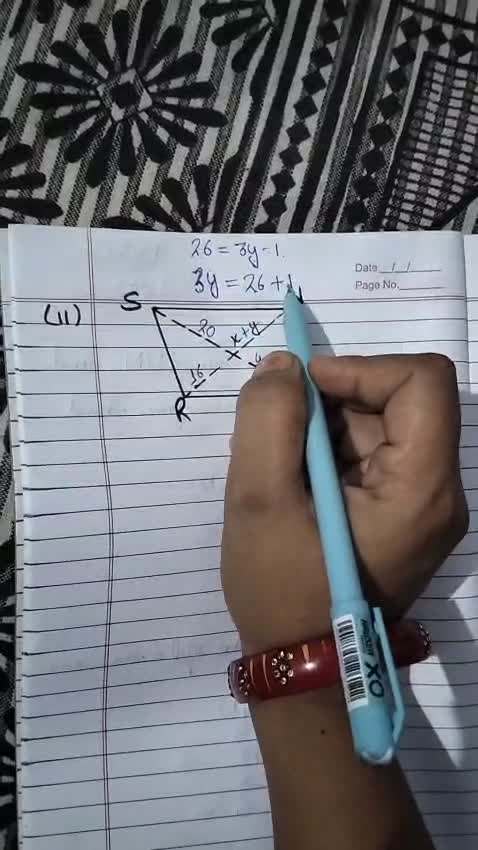 26 = 3y - 1.
3y = 26 + 1
Date / /
Page No.
(ii)
S
20
x+y
16
R
XO